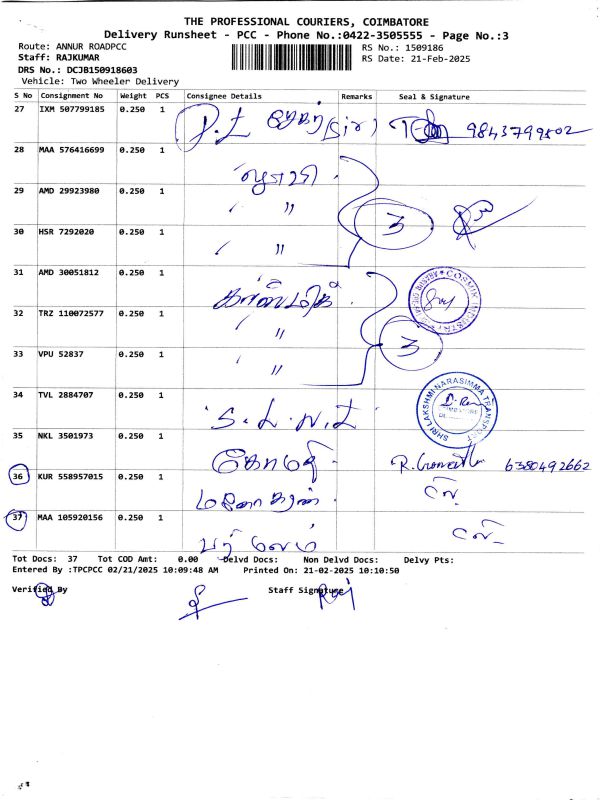 THE PROFESSIONAL COURIERS, COIMBATORE
Delivery Runsheet - PCC - Phone No.:0422-3505555 - Page No.:3
Route: ANNUR ROADPCC
RS No.: 1509186
Staff: RAJKUMAR
RS Date: 21-Feb-2025
DRS No.: DCJB150918603
Vehicle: Two Wheeler Delivery
S No Consignment No Weight PCS Consignee Details Remarks Seal & Signature
27 IXM 507799185 0.250 1 (Sir) 9843799802
28 MAA 576416699 0.250 1
29 AMD 29923980 0.250 1 " 3
30 HSR 7292020 0.250 1 "
31 AMD 30051812 0.250 1 COSMIK INDUSTRY
32 TRZ 110072577 0.250 1 "
33 VPU 52837 0.250 1 " 3
34 TVL 2884707 0.250 1 S.L.N.T SHRI LAKSHMI NARASIMMA TRANSPORT
35 NKL 3501973 0.250 1 கோமதி 6380492662
36 KUR 558957015 0.250 1 மனோகரன்
37 MAA 105920156 0.250 1
Tot Docs: 37 Tot COD Amt: 0.00 Delvd Docs: Non Delvd Docs: Delvy Pts:
Entered By :TPCPCC 02/21/2025 10:09:48 AM Printed On: 21-02-2025 10:10:50
Verified By Staff Signature